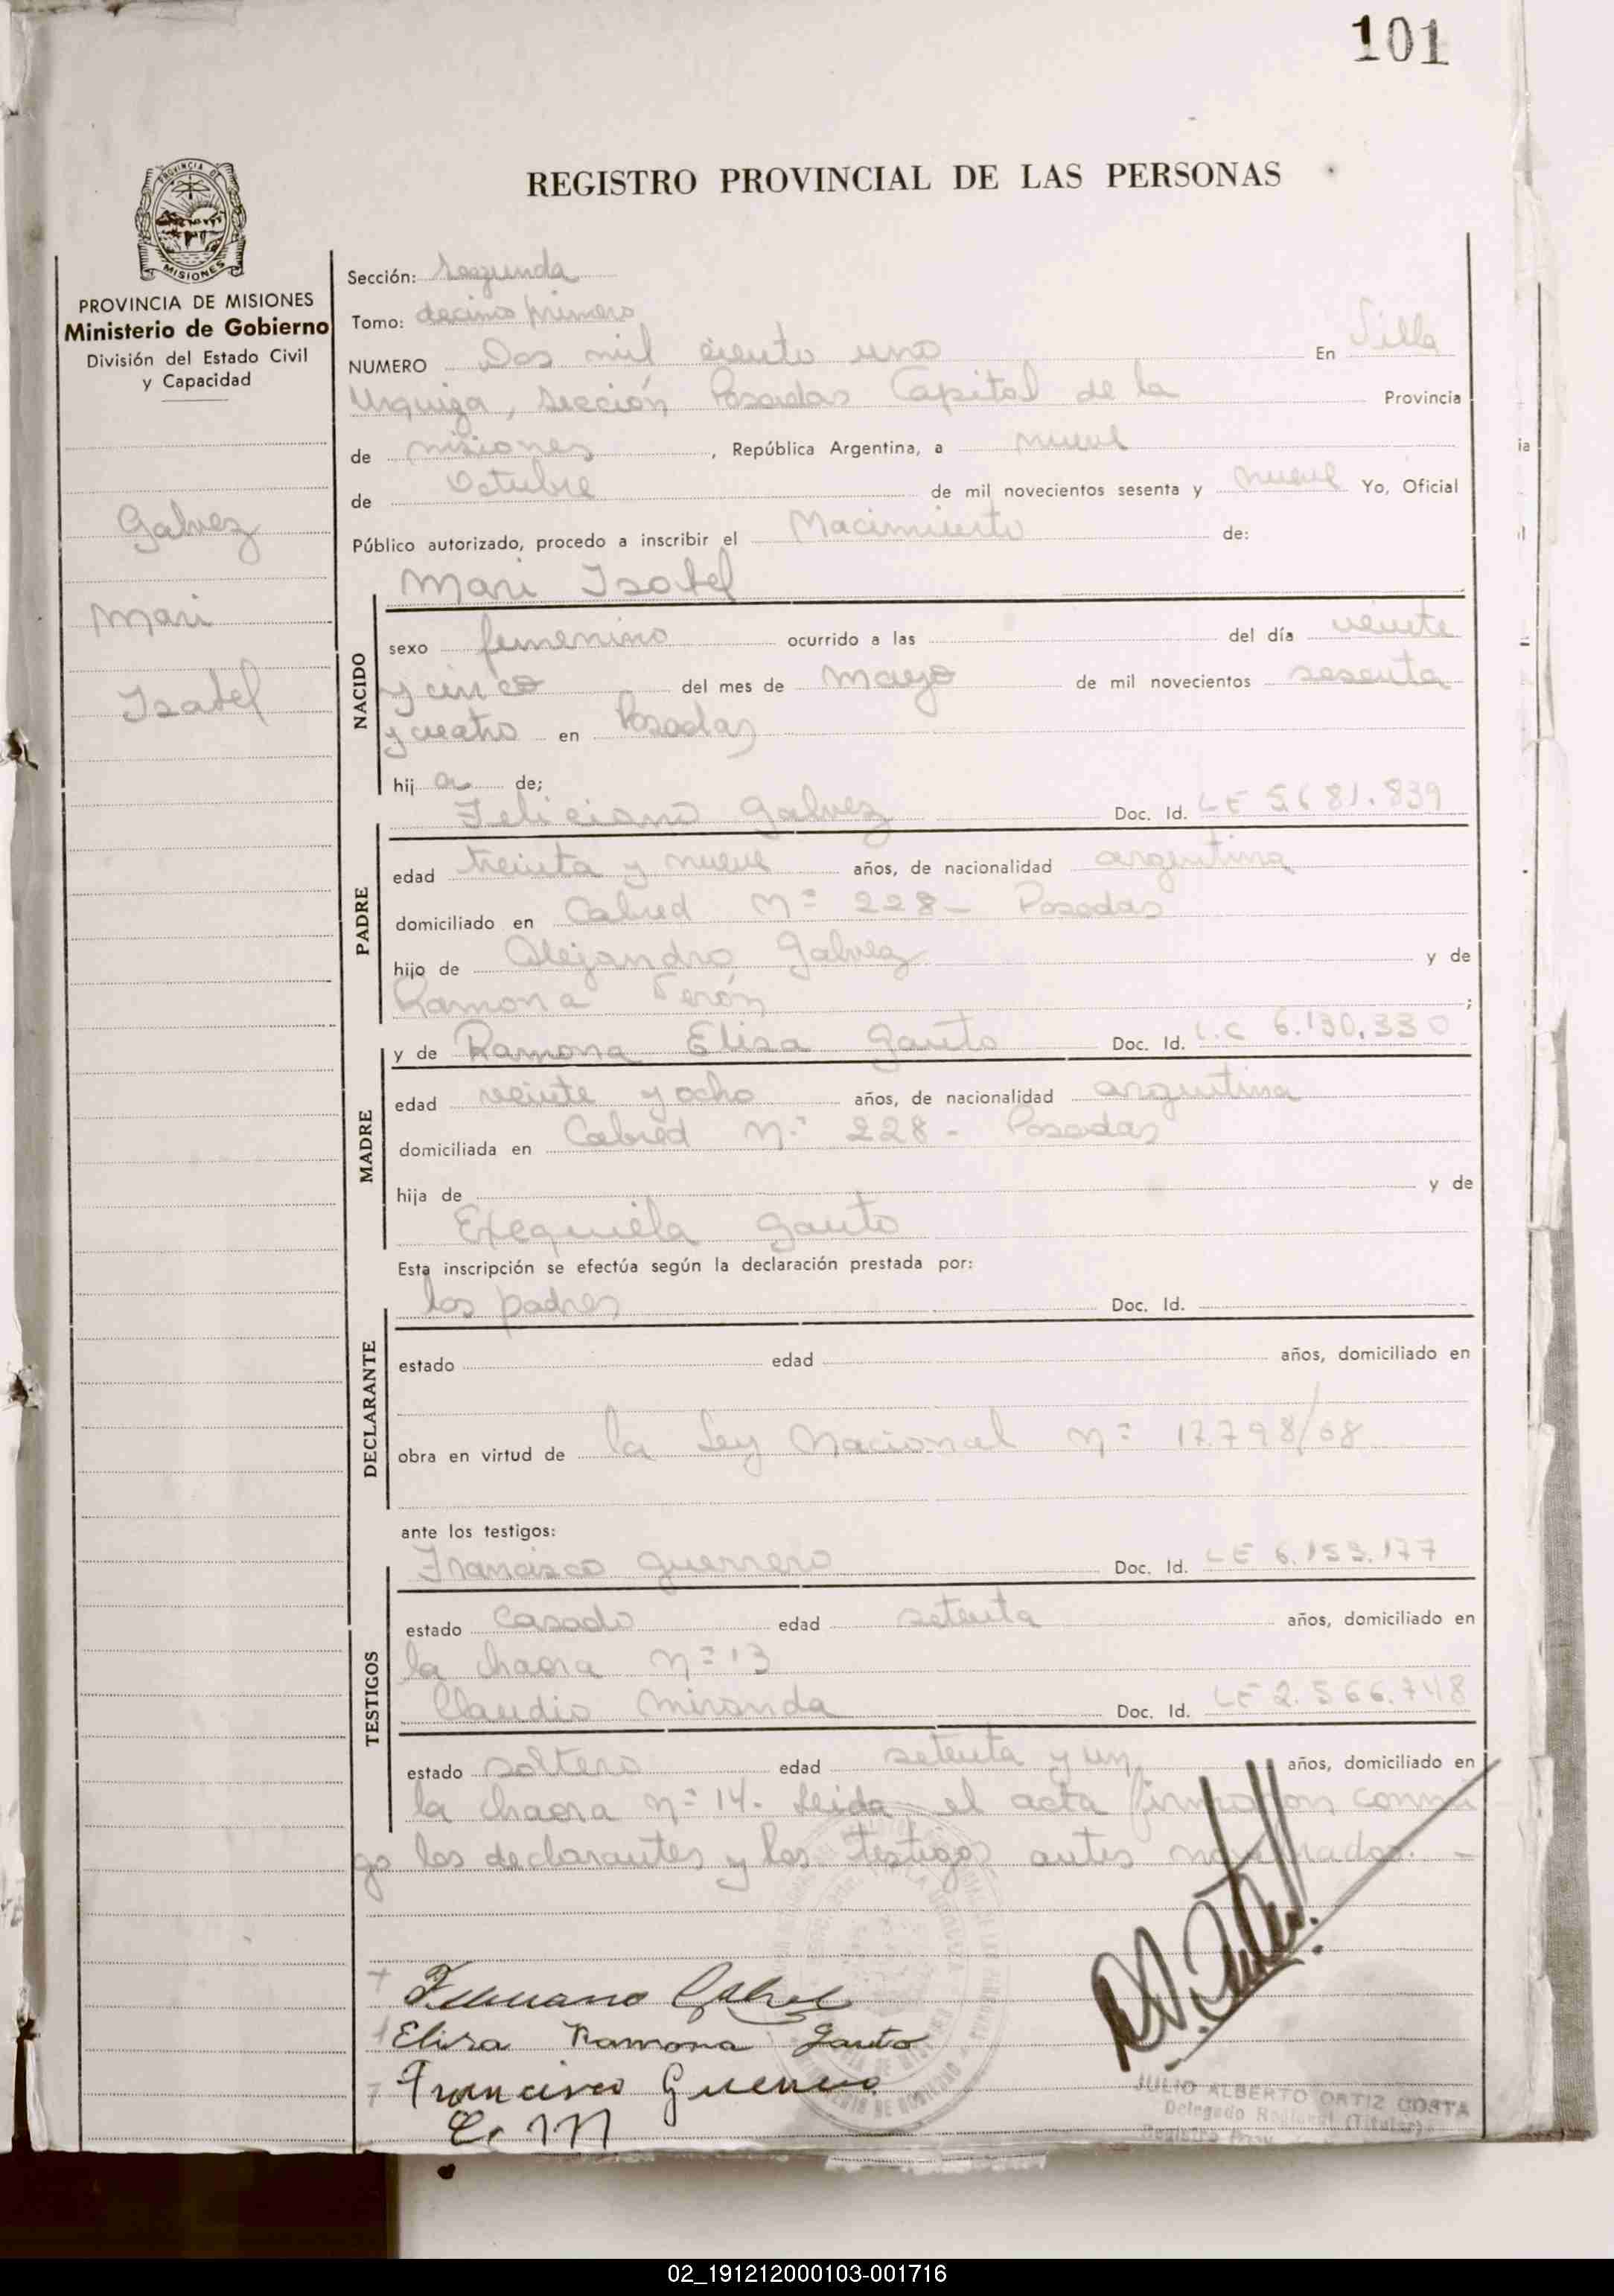 101
REGISTRO PROVINCIAL DE LAS PERSONAS
PROVINCIA DE MISIONES
Ministerio de Gobierno
División del Estado Civil
y Capacidad
Galvez
Mari
Isabel
Sección: Segunda
Tomo: decimo primero
NUMERO Dos mil ciento uno En Villa
Urquiza, Sección Posadas Capital de la Provincia
de misiones, República Argentina, a nueve
de Octubre de mil novecientos sesenta y nueve Yo, Oficial
Público autorizado, procedo a inscribir el Nacimiento de:
Mari Isabel
NACIDO
sexo femenino ocurrido a las del día veinte
y cinco del mes de mayo de mil novecientos sesenta
y cuatro en Posadas
hija de;
Feliciano Galvez Doc. Id. LE 5.681.839
PADRE
edad treinta y nueve años, de nacionalidad argentina
domiciliado en Cabred Nº 228 - Posadas
hijo de Alejandro Galvez y de
Ramona Perón;
y de Ramona Elisa Gauto Doc. Id. L.C 6.130.330
MADRE
edad veinte y ocho años, de nacionalidad argentina
domiciliada en Cabred Nº 228 - Posadas
hija de y de
Exequiela Gauto
Esta inscripción se efectúa según la declaración prestada por:
los padres Doc. Id.
DECLARANTE
estado edad años, domiciliado en
obra en virtud de la Ley Nacional Nº 17.798/68
ante los testigos:
Francisco Guerrero Doc. Id. LE 6.153.177
TESTIGOS
estado Casado edad setenta años, domiciliado en
la chacra Nº 13
Claudio Miranda Doc. Id. LE 2.566.748
estado soltero edad setenta y un años, domiciliado en
la chacra Nº 14. Leida el acta firmaron conmi
go los declarantes y los testigos antes nombrados. -
Feliciano Galvez
Elisa Ramona Gauto
Francisco Guerrero
C. M
JULIO ALBERTO ORTIZ COSTA
Delegado Regional (Titular)
02_191212000103-001716